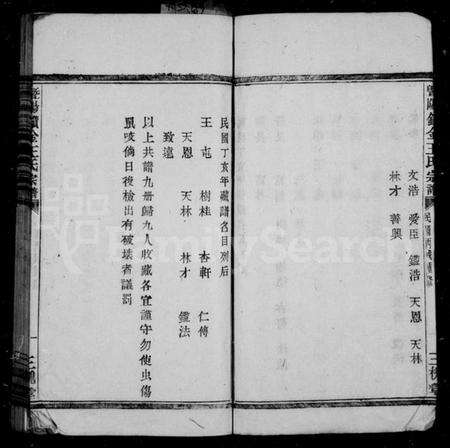 文浩 愛臣 鑑浩 天恩 天林
林才 善興
三槐堂
民國丁亥年藏譜名目列后
王屯 樹桂 杏軒 仁傅
天恩 天林 林才 鑑法
致遠
以上共譜九冊歸九人收藏各宜謹守勿使虫傷
鼠咬倘日後檢出有破壞者議罰
王氏宗譜
一
三槐堂
FamilySearch